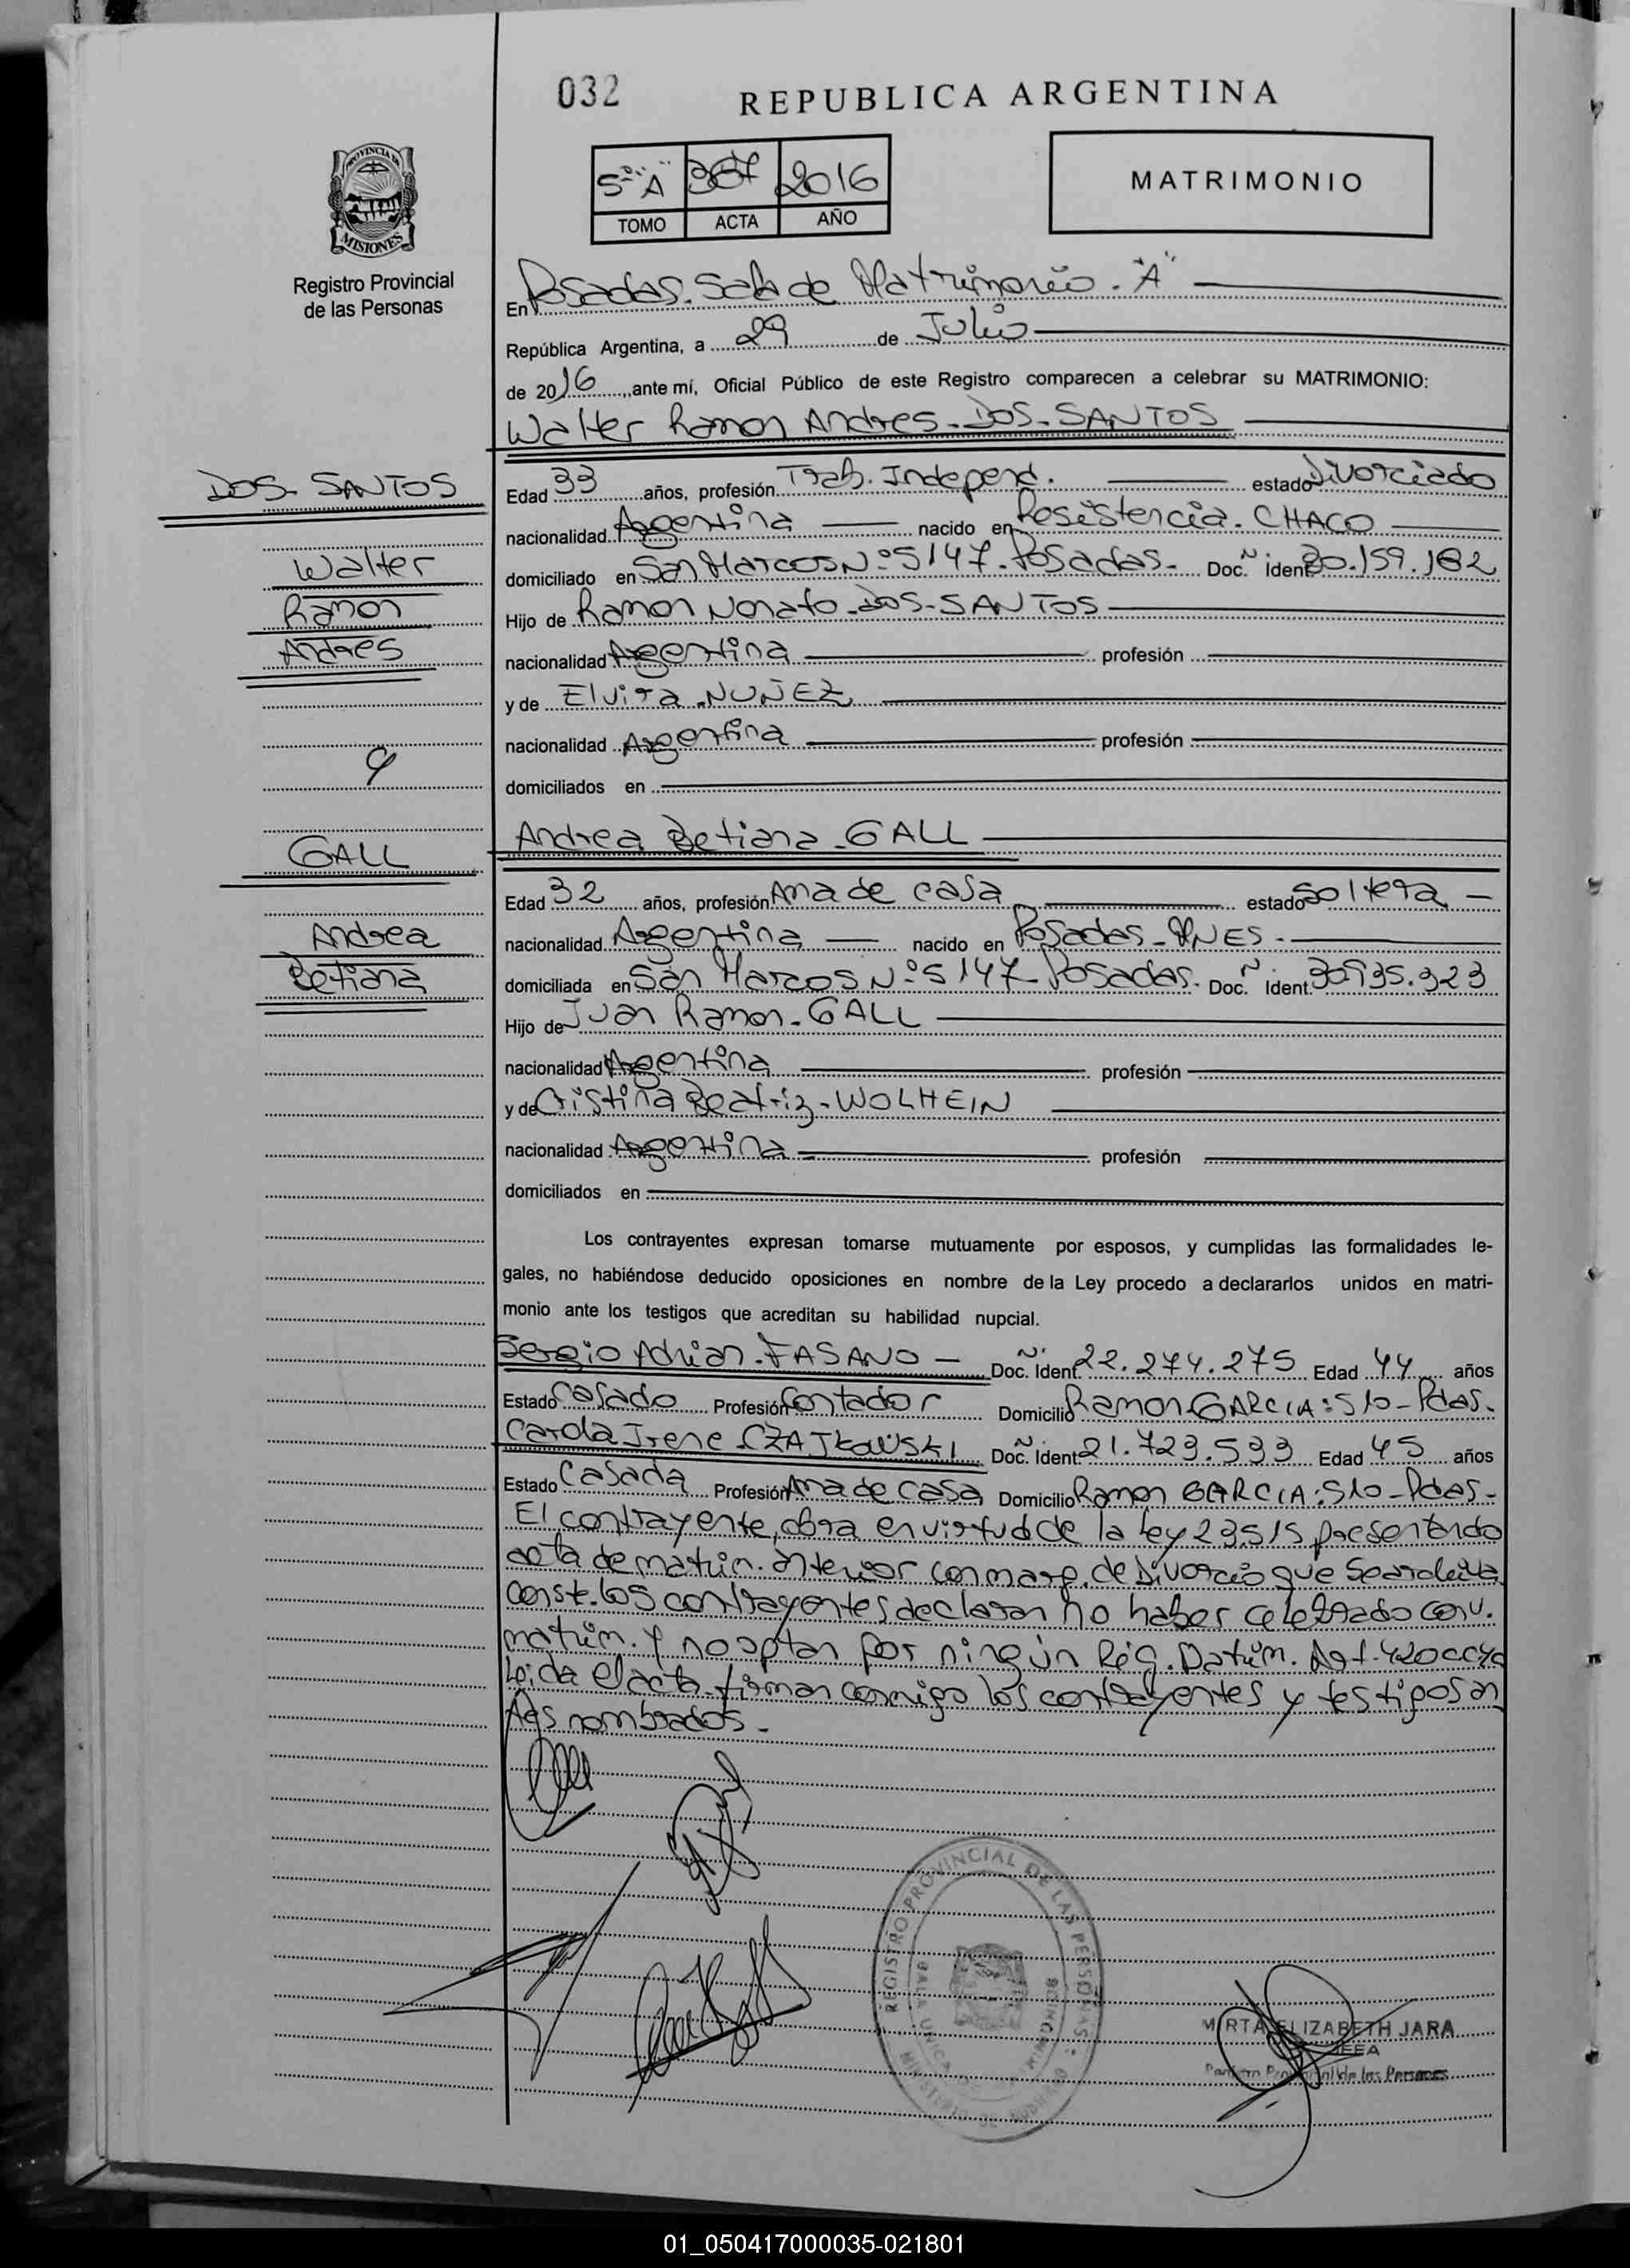 032
REPUBLICA ARGENTINA
PROVINCIA DE
MISIONES
Registro Provincial
de las Personas
5º "A" 367 2016
TOMO ACTA AÑO
MATRIMONIO
En Posadas. Sala de Matrimonio. "A"
República Argentina, a 29 de Julio
de 2016, ante mí, Oficial Público de este Registro comparecen a celebrar su MATRIMONIO:
Walter Ramon Andres-DOS-SANTOS
DOS-SANTOS
Walter
Ramon
Andres
Edad 33 años, profesión Trab. Independ. estado Divorciado
nacionalidad Argentina nacido en Resistencia. CHACO
domiciliado en San Marcos Nº 5147-Posadas- Doc. Ident 30.159.182
Hijo de Ramon Nonato-DOS-SANTOS
nacionalidad Argentina profesión
y de Elvira NUÑEZ
nacionalidad Argentina profesión
domiciliados en
y
GALL
Andrea
Betiana
Andrea Betiana-GALL
Edad 32 años, profesión Ama de casa estado soltera-
nacionalidad Argentina nacido en Posadas-MNES-
domiciliada en San Marcos Nº 5147-Posadas. Doc. Ident. 30.935.323
Hijo de Juan Ramon-GALL
nacionalidad Argentina profesión
y de Cristina Beatriz-WOLHEIN
nacionalidad Argentina profesión
domiciliados en
Los contrayentes expresan tomarse mutuamente por esposos, y cumplidas las formalidades le-
gales, no habiéndose deducido oposiciones en nombre de la Ley procedo a declararlos unidos en matri-
monio ante los testigos que acreditan su habilidad nupcial.
Sergio Adrian-FASANO- Doc. Ident. 22.274.275 Edad 44 años
Estado Casado Profesión Contador Domicilio Ramon GARCIA:510-Pdas.
Carola Irene-CZAJKOWSKI Doc. Ident. 21.723.533 Edad 45 años
Estado Casada Profesión Ama de casa Domicilio Ramon GARCIA:510-Pdas-
El contrayente, obra en virtud de la Ley 23515 presentando
acta de matrim. anterior con marg. de Divorcio que Se archiva
conste. los contrayentes declaran no haber celebrado conv.
matrim. y no optan por ningún Rég. Patrim. Art. 420 CCyC
Leida el acta firman conmigo los contrayentes y testigos an
tes nombrados-
REGISTRO PROVINCIAL DE LAS PERSONAS
MISIONES
MIRTA ELIZABETH JARA
Registro Provincial de las Personas
01_050417000035-021801